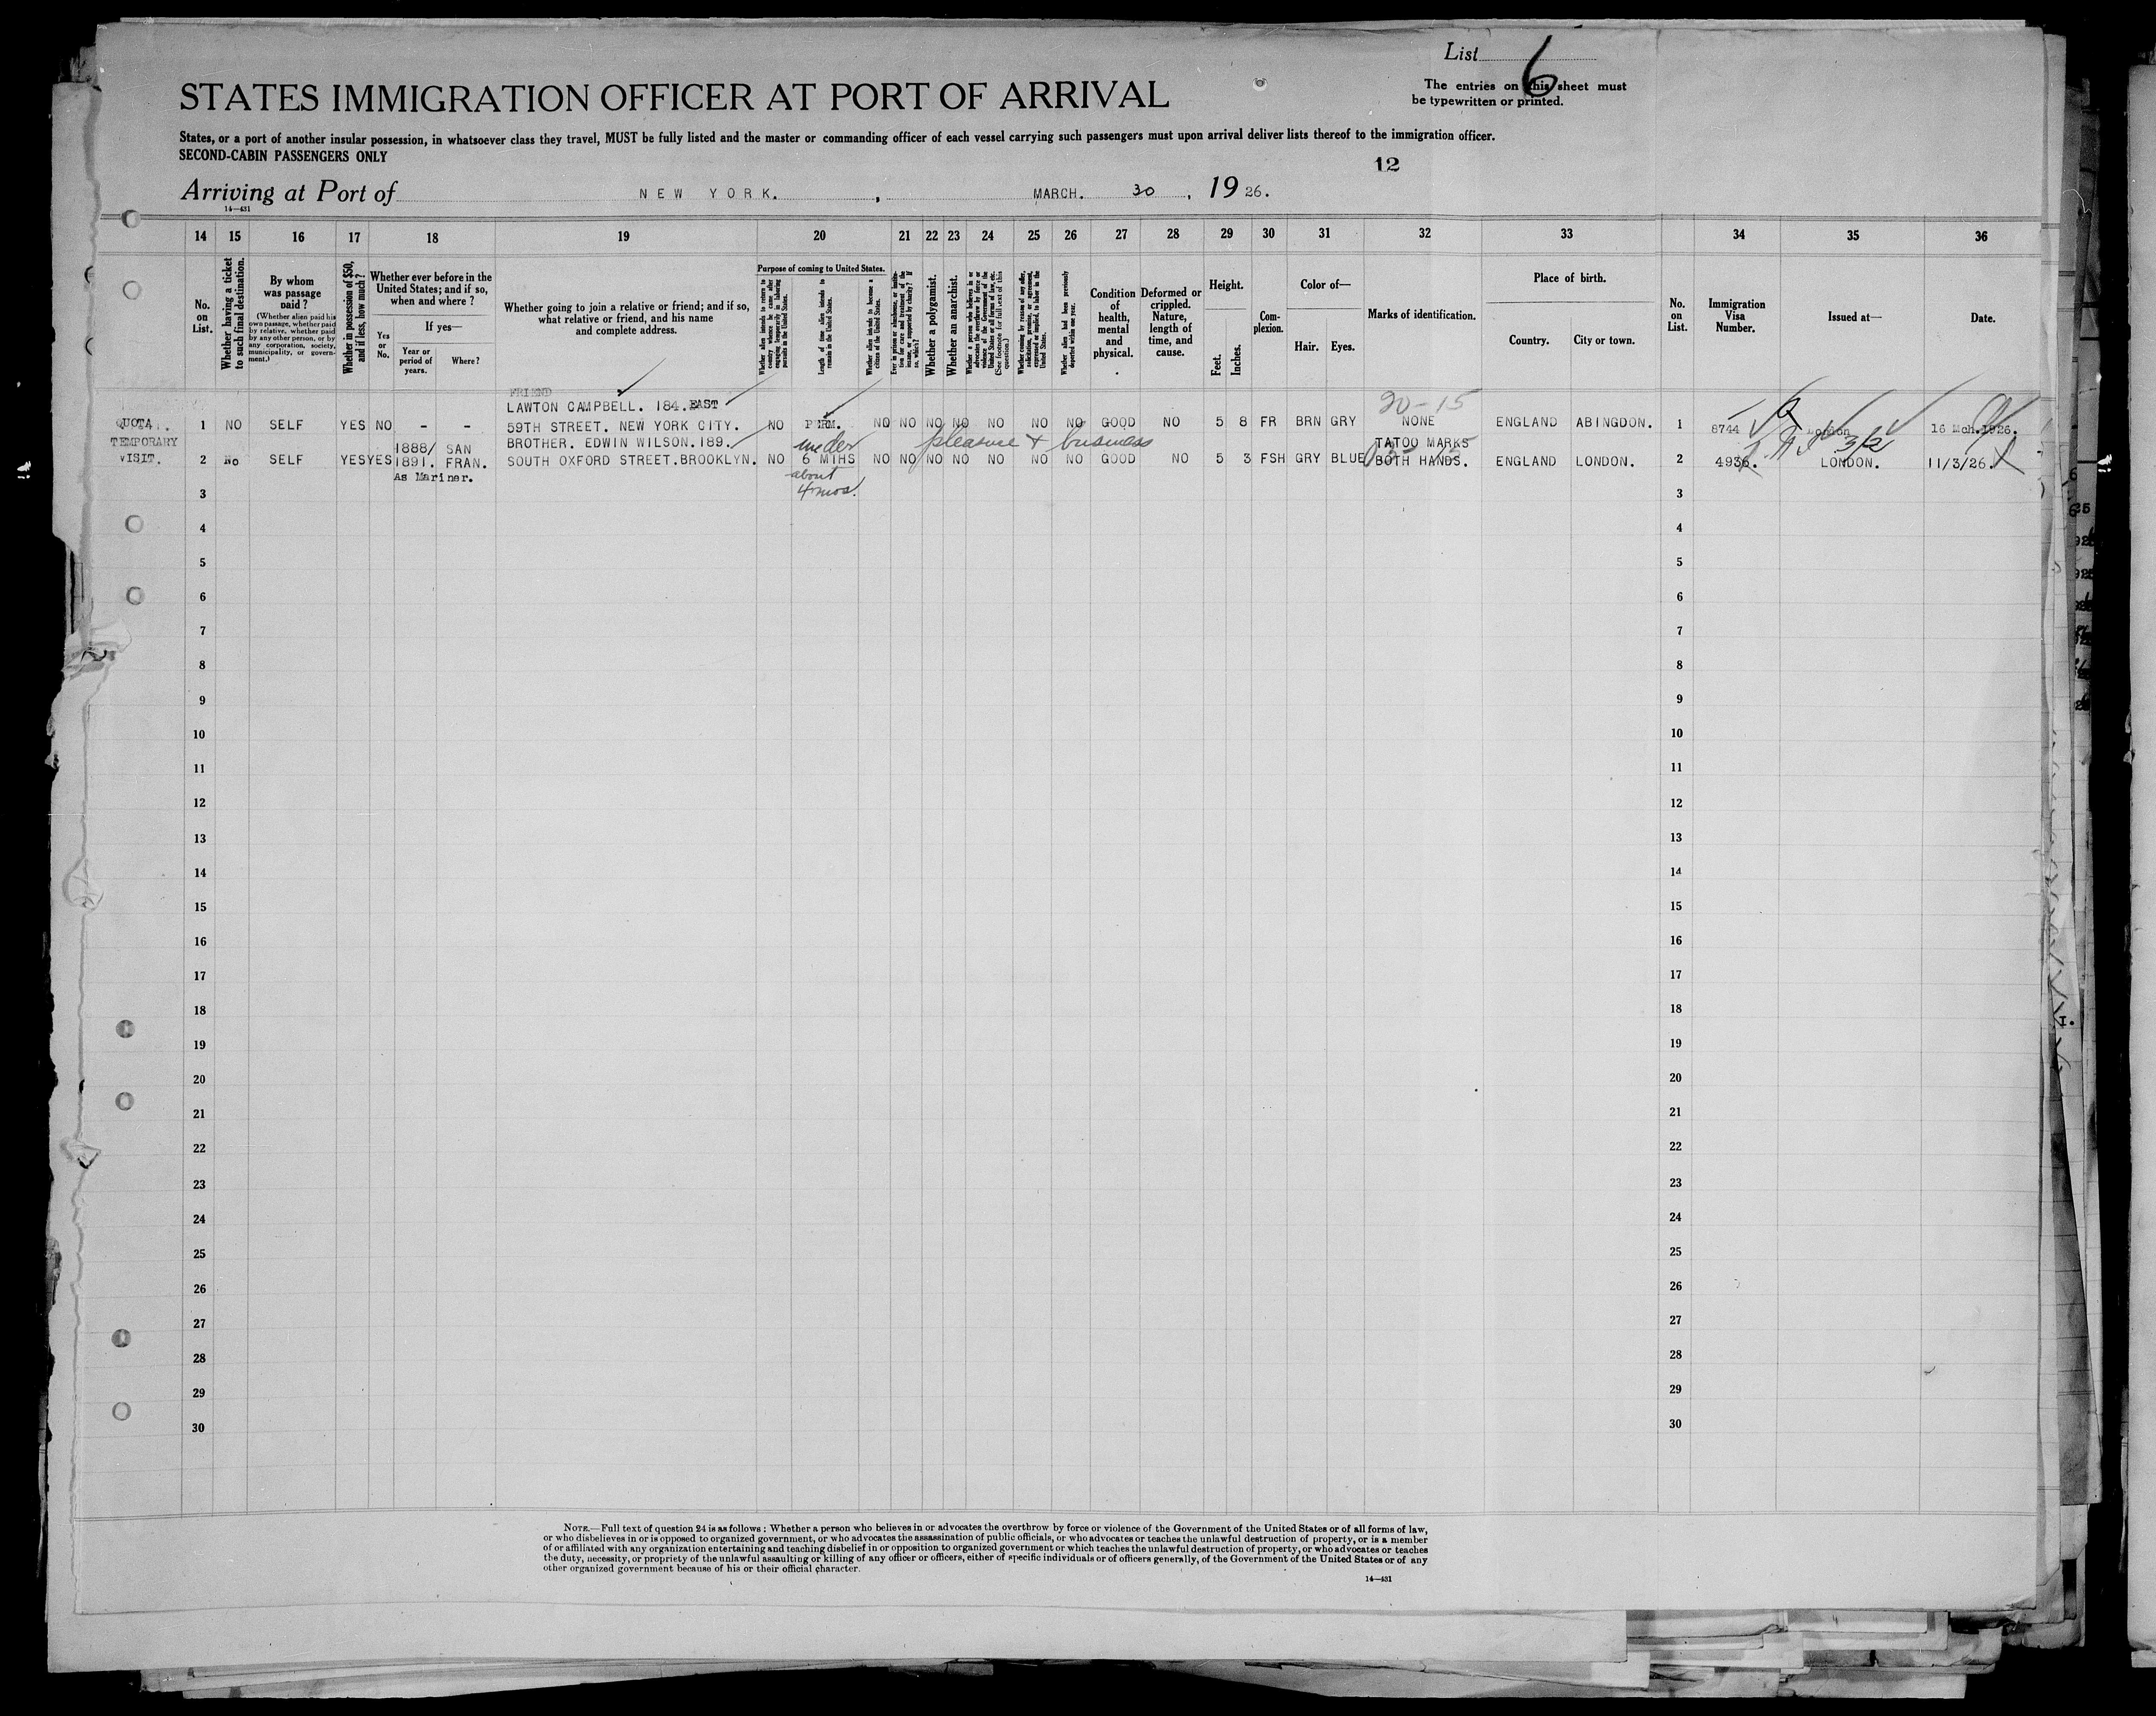 List 6
The entries on this sheet must
be typewritten or printed.
STATES IMMIGRATION OFFICER AT PORT OF ARRIVAL
States, or a port of another insular possession, in whatsoever class they travel, MUST be fully listed and the master or commanding officer of each vessel carrying such passengers must upon arrival deliver lists thereof to the immigration officer.
SECOND-CABIN PASSENGERS ONLY
12
Arriving at Port of NEW YORK. , MARCH. 30 , 19 26.
14—431
14 15 16 17 18 19 20 21 22 23 24 25 26 27 28 29 30 31 32 33 34 35 36
No. on List.
Whether having a ticket to such final destination.
By whom was passage paid?
(Whether alien paid his own passage, whether paid by relative, whether paid by any other person, or by any corporation, society, municipality, or government.)
Whether in possession of $50, and if less, how much?
Whether ever before in the United States; and if so, when and where?
Yes or No.
If yes—
Year or period of years.
Where?
Whether going to join a relative or friend; and if so, what relative or friend, and his name and complete address.
Purpose of coming to United States.
Whether alien intends to return to country whence he came after engaging temporarily in laboring pursuits in the United States.
Length of time alien intends to remain in the United States.
Whether alien intends to become a citizen of the United States.
Whether a polygamist.
Whether an anarchist.
Whether coming by reason of any offer, solicitation, promise, or agreement, expressed or implied, to labor in the United States.
Whether alien had been previously deported within one year.
Condition of health, mental and physical.
Deformed or crippled. Nature, length of time, and cause.
Height.
Feet.
Inches.
Complexion.
Color of—
Hair. Eyes.
Marks of identification.
Place of birth.
Country. City or town.
No. on List.
Immigration Visa Number.
Issued at—
Date.
FRIEND
LAWTON CAMPBELL. 184. EAST
20-15
QUOTA. 1 NO SELF YES NO - - 59TH STREET. NEW YORK CITY. NO PERM. NO NO NO NO NO NO NO GOOD NO 5 8 FR BRN GRY NONE ENGLAND ABINGDON. 1 8744 London 16 Mch.1926.
TEMPORARY 1888/ SAN BROTHER. EDWIN WILSON.189. under pleasure + business TATOO MARKS
VISIT. 2 No SELF YES YES 1891. FRAN. SOUTH OXFORD STREET.BROOKLYN. NO 6 MTHS NO NO NO NO NO NO NO GOOD NO 5 3 FSH GRY BLUE BOTH HANDS. ENGLAND LONDON. 2 4936. LONDON. 11/3/26.
As Mariner. about
4 mos.
3 3
4 4
5 5
6 6
7 7
8 8
9 9
10 10
11 11
12 12
13 13
14 14
15 15
16 16
17 17
18 18
19 19
20 20
21 21
22 22
23 23
24 24
25 25
26 26
27 27
28 28
29 29
30 30
NOTE.—Full text of question 24 is as follows: Whether a person who believes in or advocates the overthrow by force or violence of the Government of the United States or of all forms of law,
or who disbelieves in or is opposed to organized government, or who advocates the assassination of public officials, or who advocates or teaches the unlawful destruction of property, or is a member
of or affiliated with any organization entertaining and teaching disbelief in or opposition to organized government or which teaches the unlawful destruction of property, or who advocates or teaches
the duty, necessity, or propriety of the unlawful assaulting or killing of any officer or officers, either of specific individuals or of officers generally, of the Government of the United States or of any
other organized government because of his or their official character.
14—431